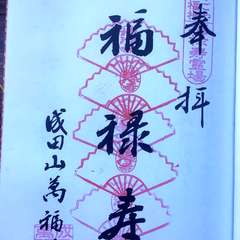 奉拝
福禄寿
成田山萬福